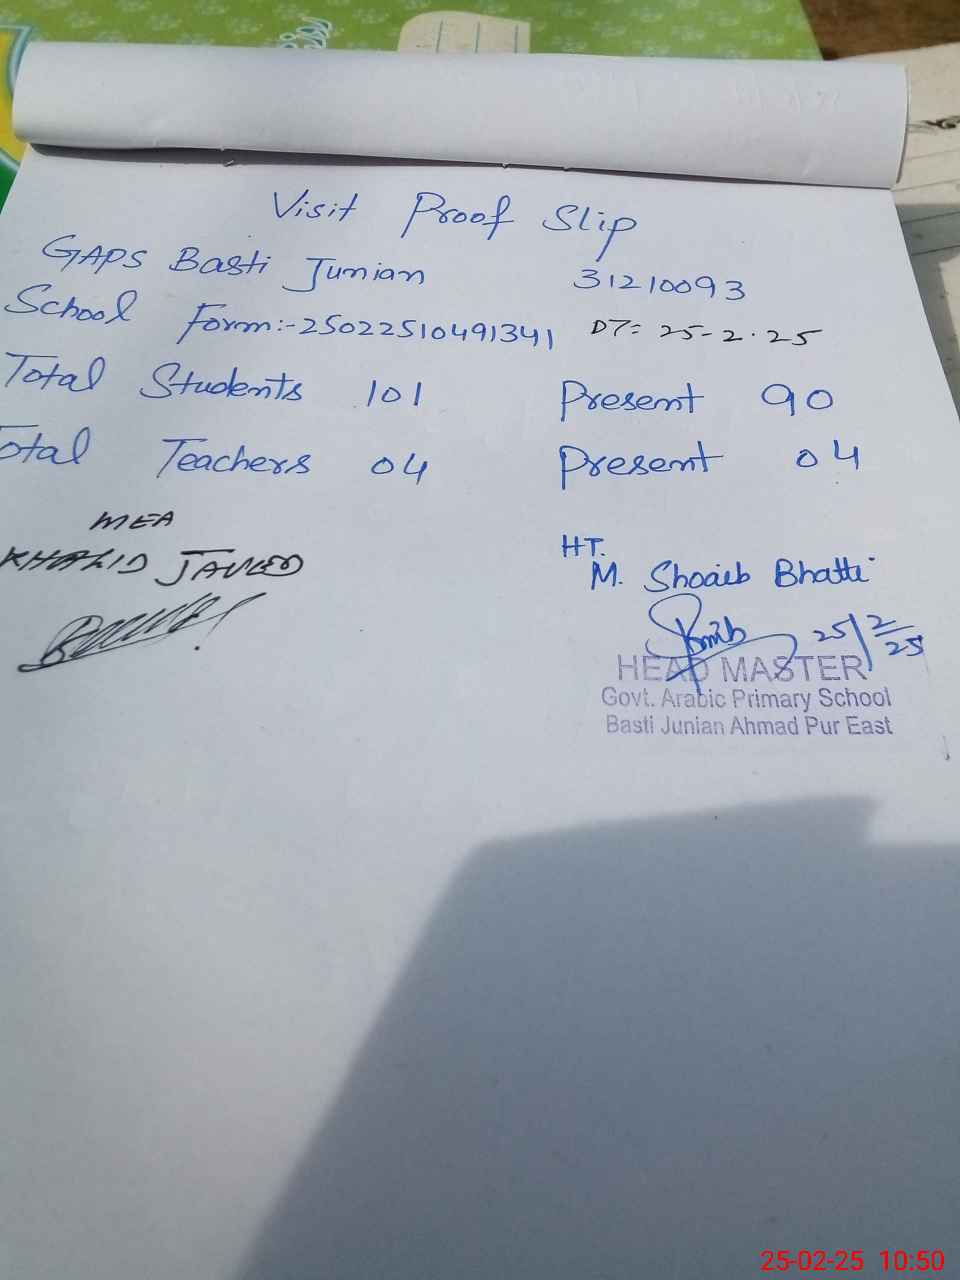 Visit Proof Slip
GAPS Basti Junian 31210093
School Form:-25022510491341 DT= 25-2.25
Total Students 101 Present 90
Total Teachers 04 Present 04
MEA
KHALID JAVED
HT.
M. Shoaib Bhatti
25/2/25
HEAD MASTER
Govt. Arabic Primary School
Basti Junian Ahmad Pur East
25-02-25 10:50